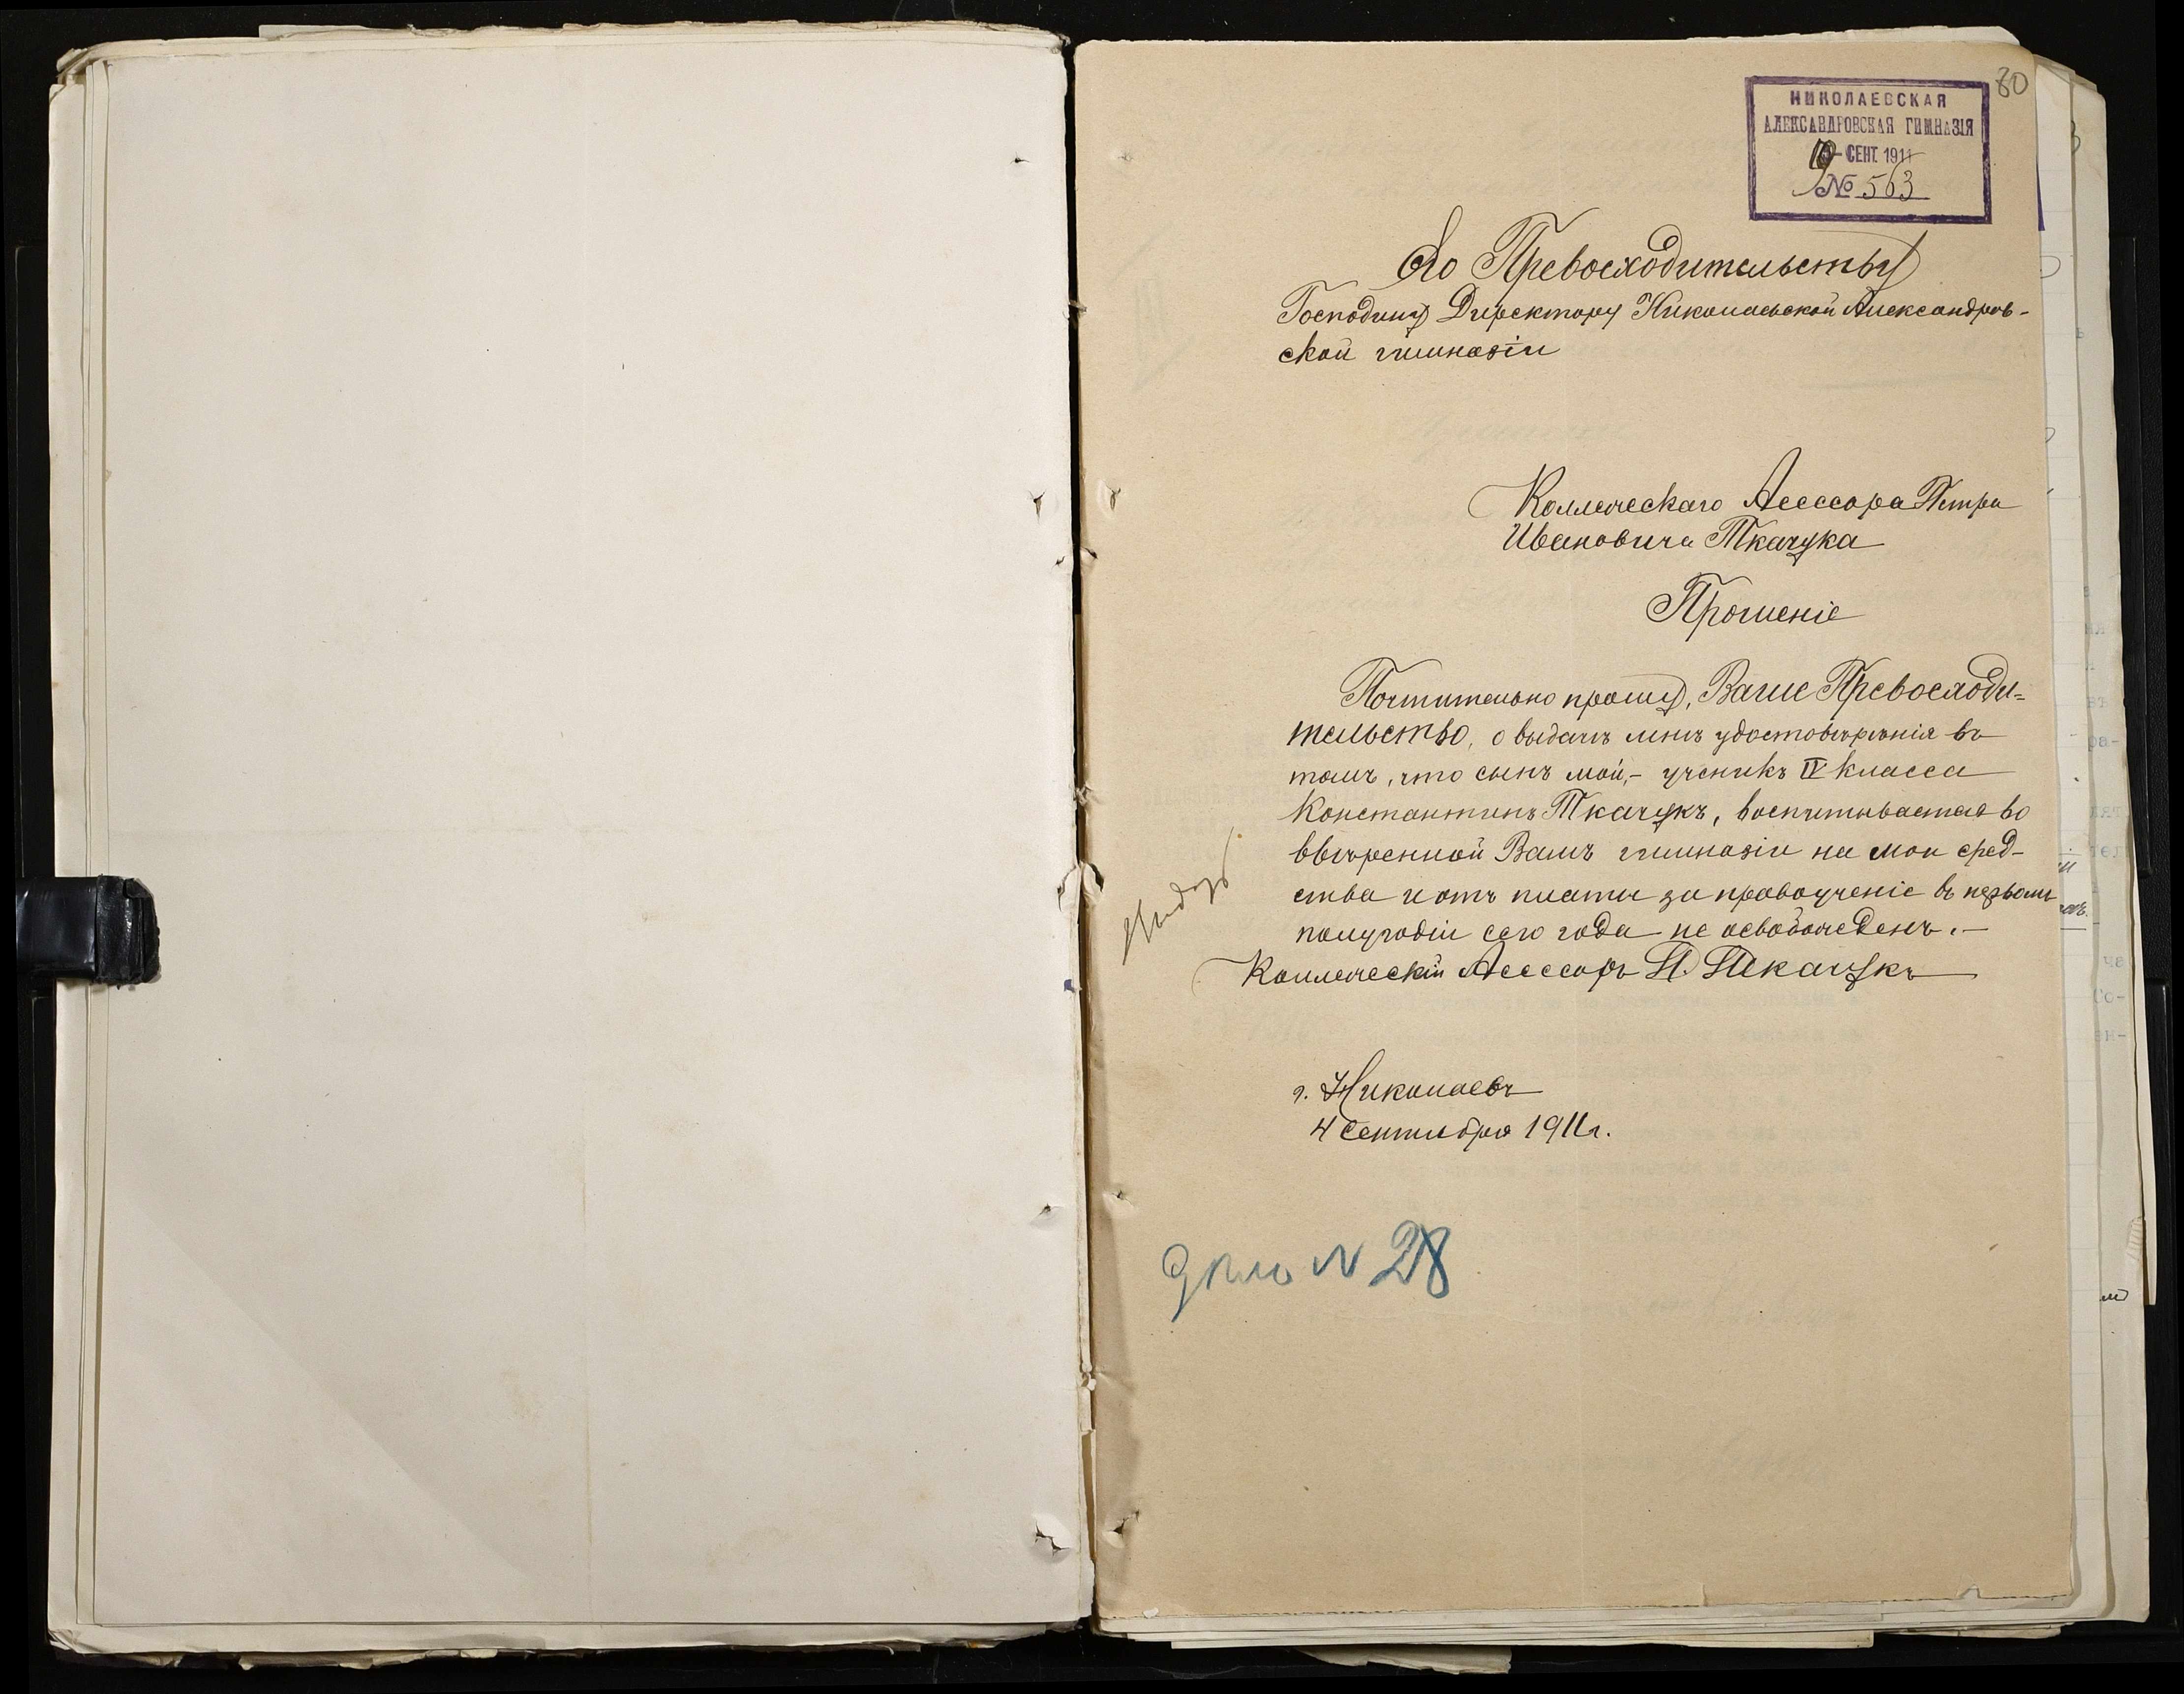 80
НИКОЛАЕВСКАЯ
АЛЕКСАНДРОВСКАЯ ГИМНАЗІЯ
СЕНТ. 1911
№ 563
Его Превосходительству
Господину Директору Николаевской Александров-
ской гимназіи
Коллежскаго Ассессора Петра
Ивановича Ткачука
Прошеніе
Почтительно прошу, Ваше Превосходи=
тельство, о выдачѣ мнѣ удостовѣрѣнія въ
томъ, что сынъ мой,- ученикъ IV класса
Константинъ Ткачукъ, воспитывается во
ввѣренной Вамъ гимназіи на мои сред-
ства и отъ платы за правоученіе въ первомъ
полугодіи сего года не освобожденъ.-
Коллежскій Ассессоръ П. Ткачукъ
г. Николаевъ
4 Сентября 1911 г.
дѣло N 28